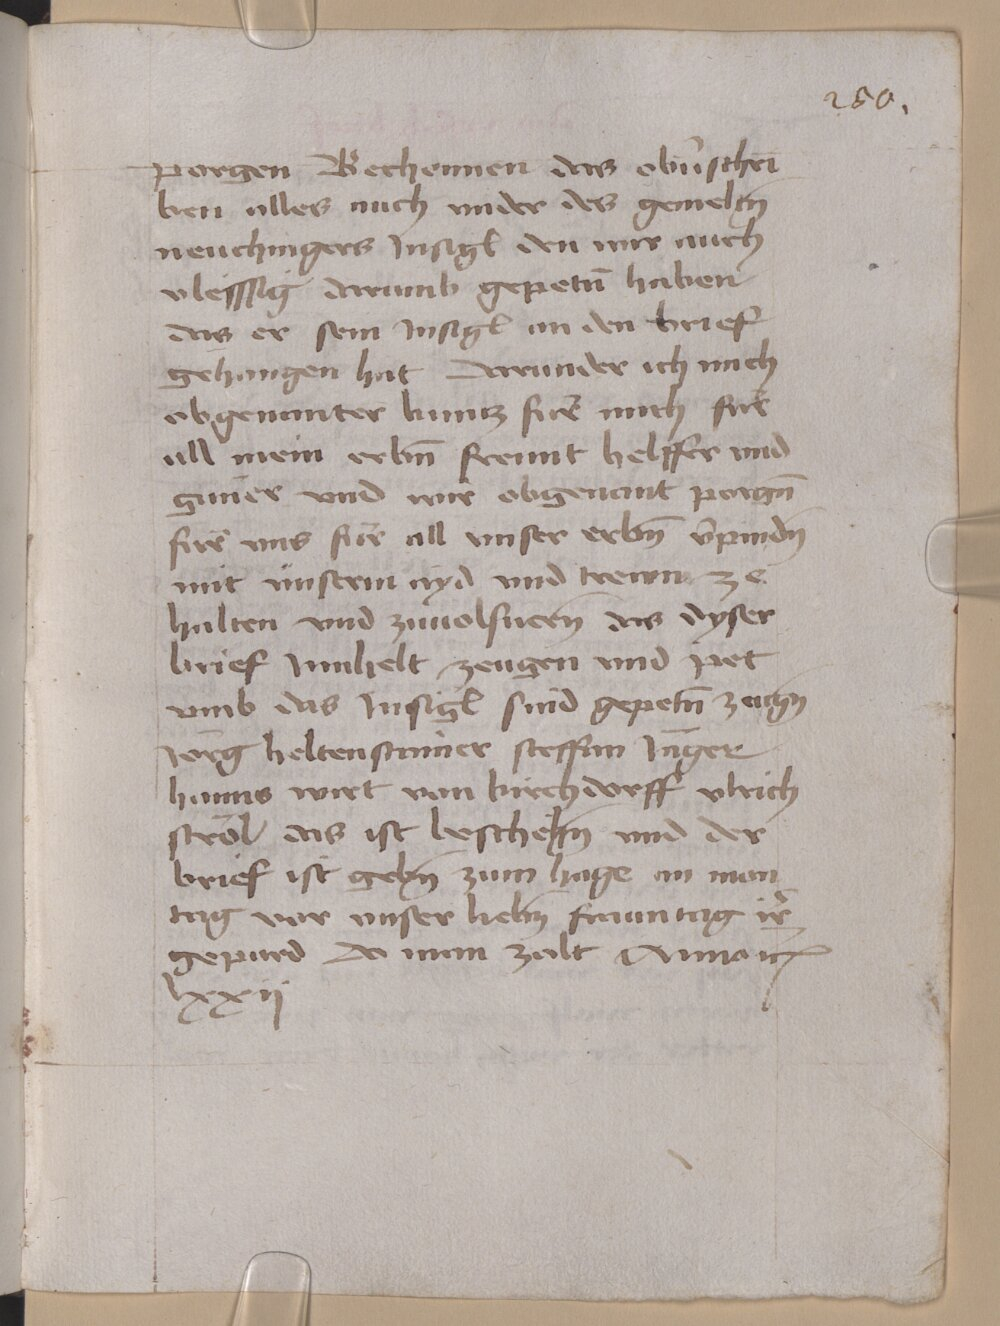 250.
porgen Bechennen das obŭschri
ben alles auch vnder des gemeltn̄
neuchingers Insigl den wir auch
vleissig darumb gepetn̄ haben
das er sein Insigl an den brief
gehangen hat Darunder ich mich
obgenanter kuntz für mich für
all mein erbn̄ freunt helffer vnd
günēr vnd wir obgenant porgn̄
für vns für all vnser erbn̄ v̄pindn̄
mit vnserm ayd vnd trewn ze
halten vnd zuuolfuern̄ das dyser
brief Innhelt zeugen vnd pet
vmb das Insigl sind gepetn̄ zeugn̄
Jorg heltenstainer steffan Jäger
hanns wirt von kirchdorff vlrich
ströl das ist beschehn̄ vnd der
brief ist gebn̄ zum hage an man
tag vor vnser liebn̄ frauntag ir̄
gepurd Do man zalt Anno
lxxij